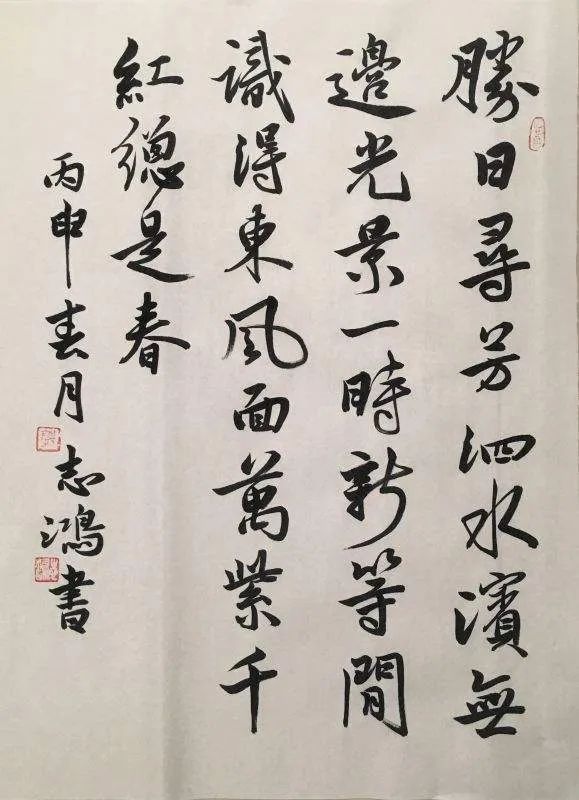 勝日尋芳泗水濱無
邊光景一時新等閒
識得東風面萬紫千
紅總是春
丙申春月志鴻書